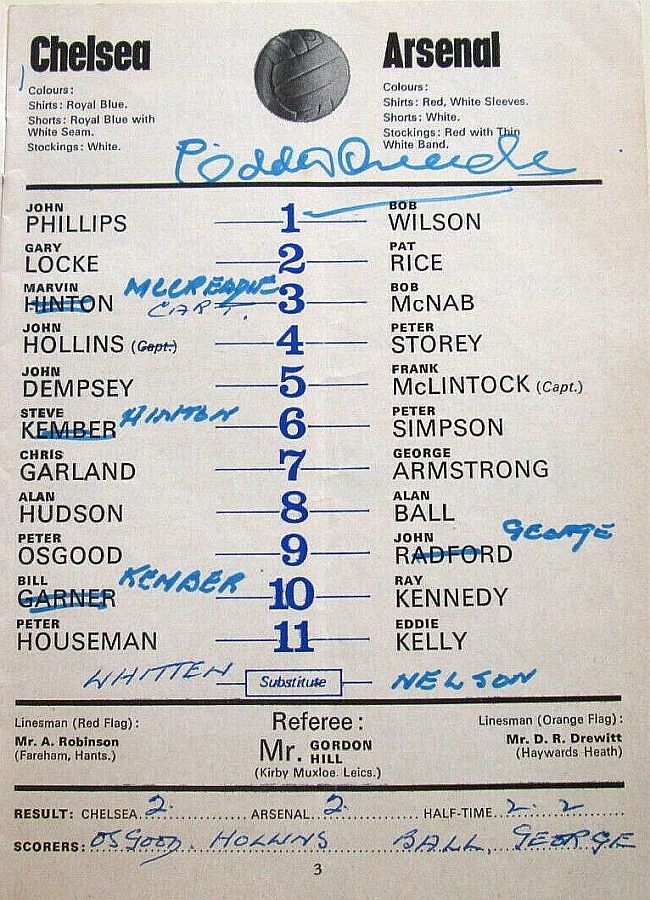 Chelsea Arsenal
Colours: Colours:
Shirts: Royal Blue. Shirts: Red, White Sleeves.
Shorts: Royal Blue with Shorts: White.
White Seam. Stockings: Red with Thin
Stockings: White. White Band.
JOHN BOB
PHILLIPS 1 WILSON
GARY PAT
LOCKE 2 RICE
MARVIN McCREADIE BOB
HINTON CAPT. 3 McNAB
JOHN PETER
HOLLINS (Capt.) 4 STOREY
JOHN FRANK
DEMPSEY 5 McLINTOCK (Capt.)
STEVE PETER
KEMBER HINTON 6 SIMPSON
CHRIS GEORGE
GARLAND 7 ARMSTRONG
ALAN ALAN
HUDSON 8 BALL
PETER JOHN GEORGE
OSGOOD 9 RADFORD
BILL KEMBER RAY
GARNER 10 KENNEDY
PETER EDDIE
HOUSEMAN 11 KELLY
WHITTEN Substitute NELSON
Linesman (Red Flag): Referee: Linesman (Orange Flag):
Mr. A. Robinson Mr. GORDON HILL Mr. D. R. Drewitt
(Fareham, Hants.) (Kirby Muxloe. Leics.) (Haywards Heath)
RESULT: CHELSEA 2. ARSENAL 2 HALF-TIME 2. 2
SCORERS: OSGOOD. HOLLINS BALL, GEORGE
3